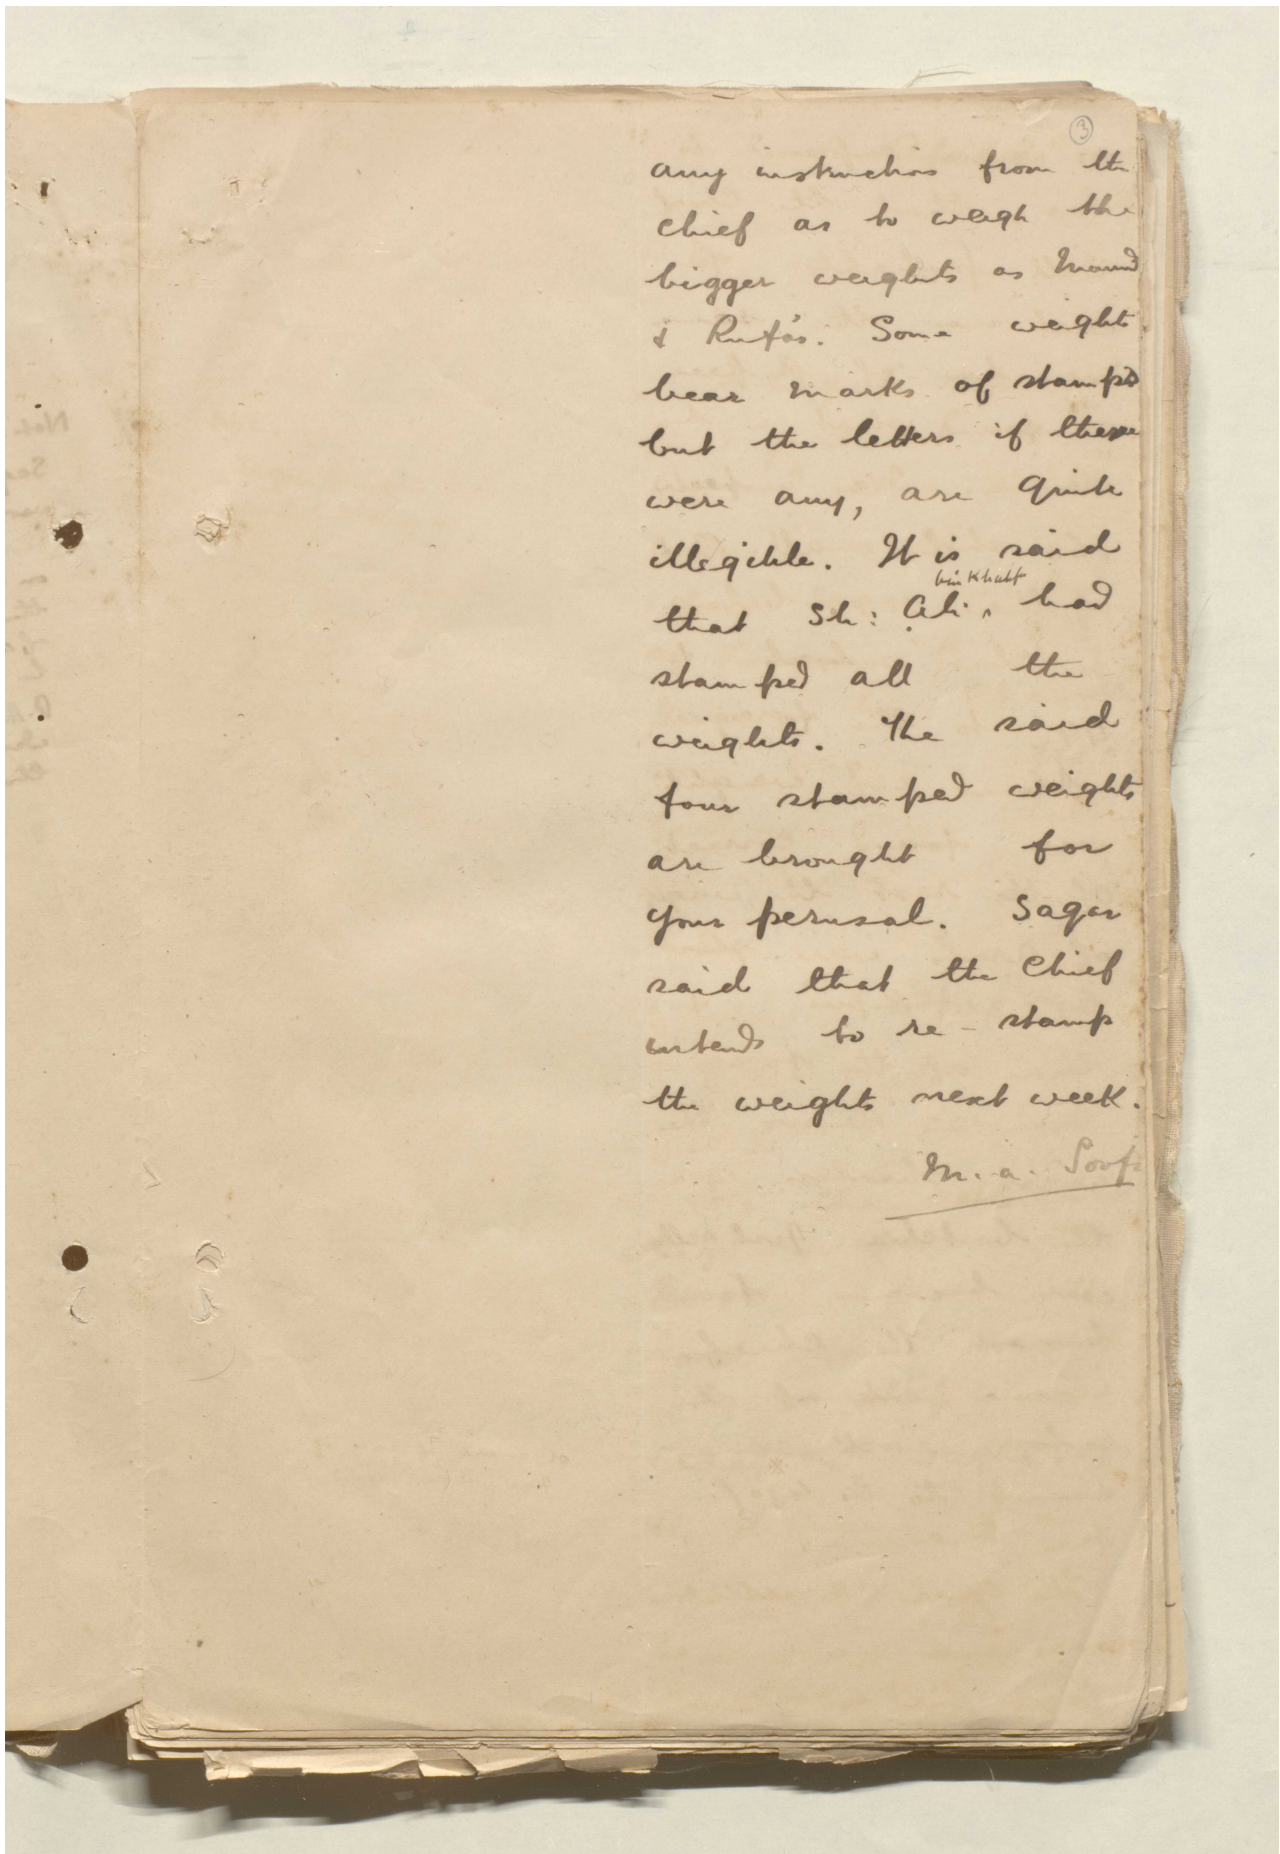 3
any instructions from the
chief as to weigh the
bigger weights as Maund
& Ruf'as. Some weights
bear marks of stamped
but the letters if there
were any, are quite
illegible. It is said
bin Khalf
that Sh: Ali ‸ had
stamped all the
weights. The said
four stamped weights
are brought for
your perusal. Sagar
said that the Chief
intends to re-stamp
the weights next week.
M. a.